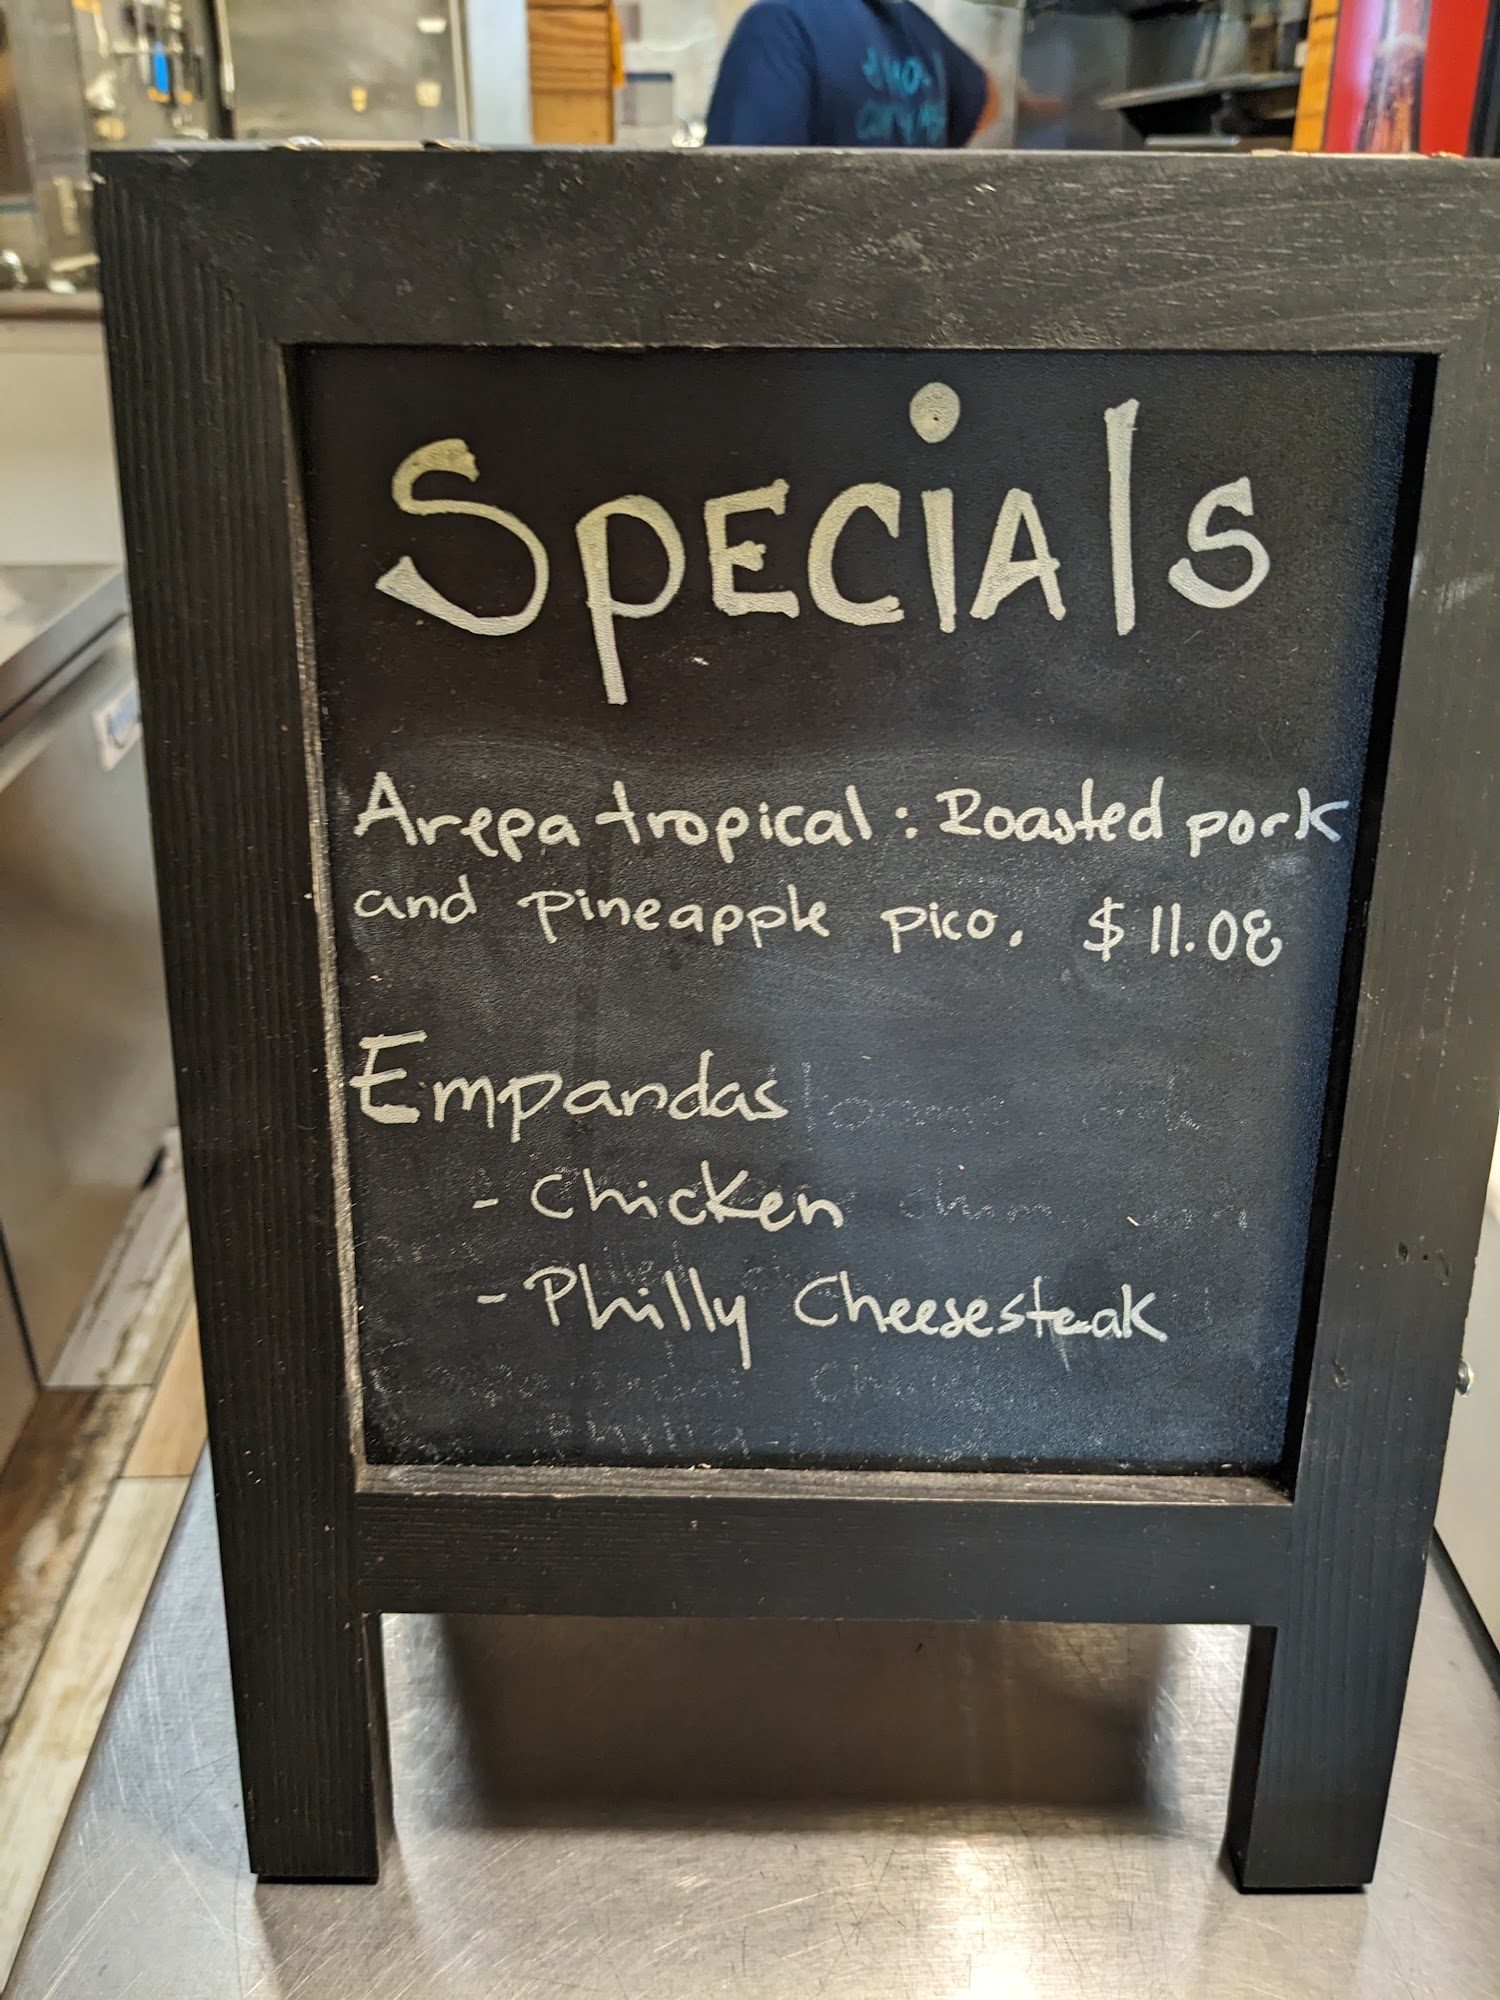 Specials
Arepa tropical: Roasted pork
and pineapple pico. $11.08
Empandas
- Chicken
- Philly Cheesesteak